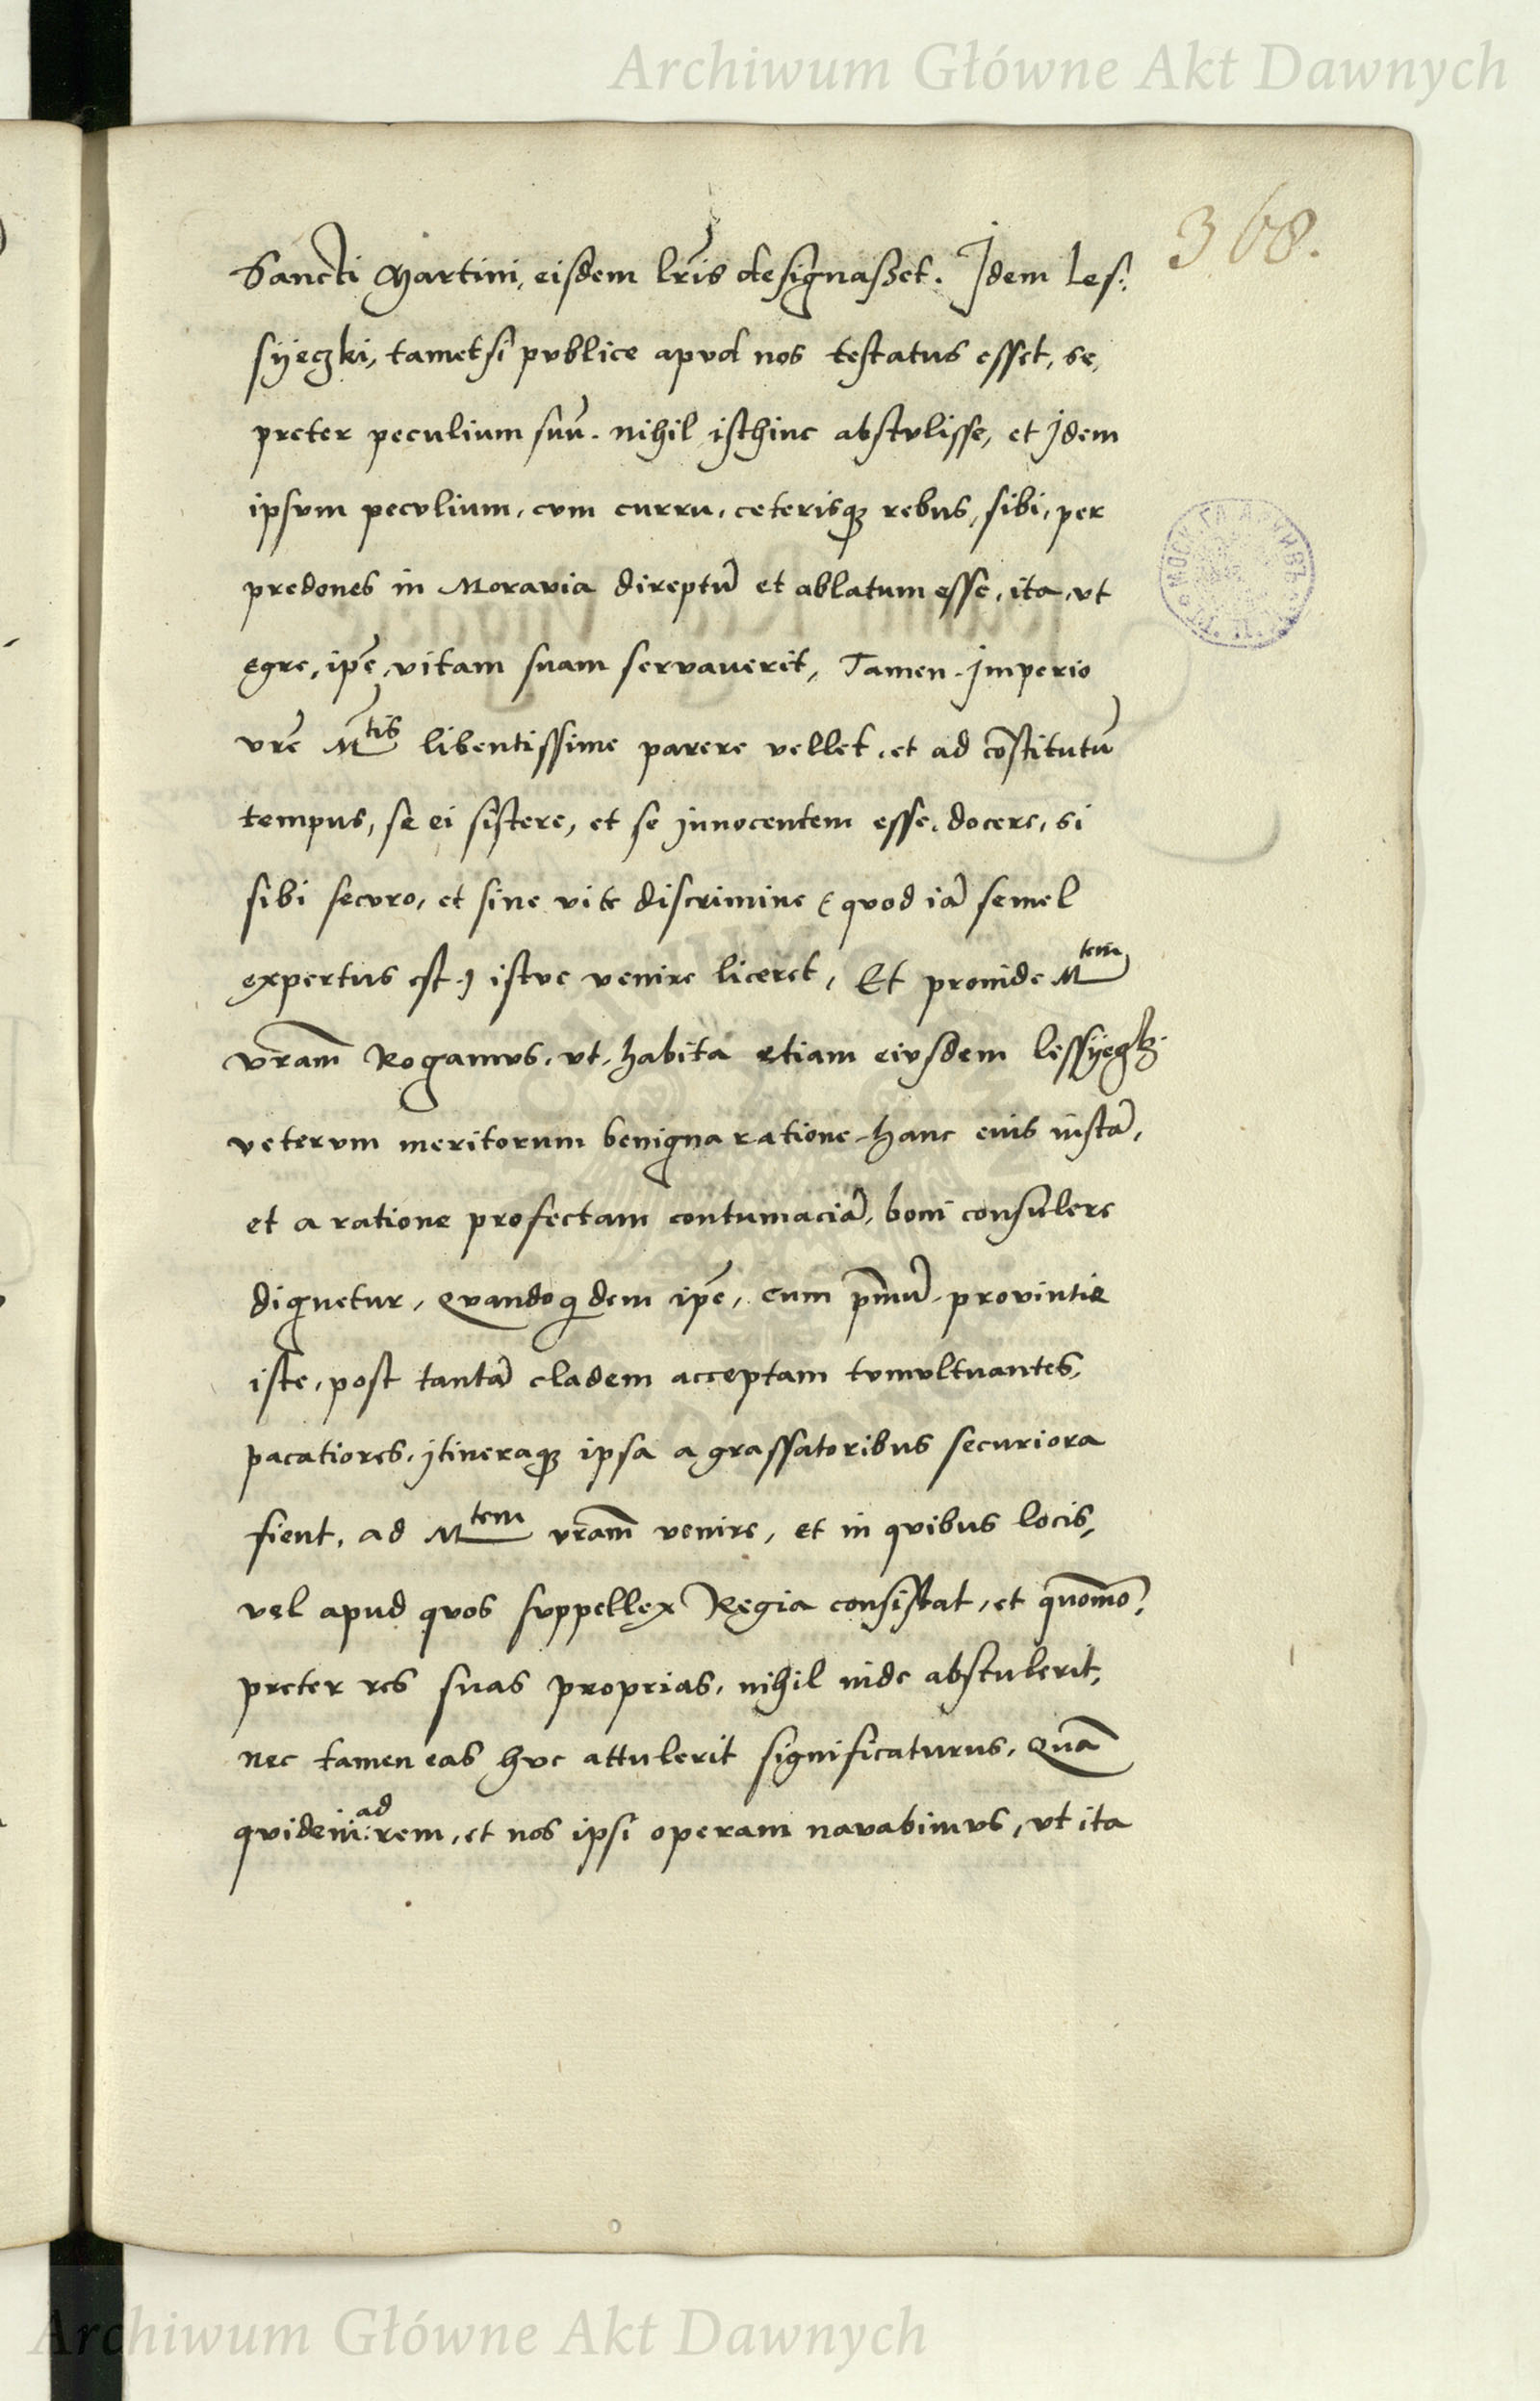 Archiwum Główne Akt Dawnych
368.
Sancti Martini, eisdem lr̄is designasset. Idem Les:
syeczki, tametsi pvblice apvd nos testatus esset, se,
preter peculium suū. nihil isthinc abstvlisse, et Idem
ipsvm pecvlium, cvm curru, ceterisqꝫ rebus, sibi, per
predones in Moravia direptū et ablatum esse, ita, vt
egre, ip̄e, vitam suam servaverit, Tamen. Imperio
vr̄e Mtis libentissime parere vellet, et ad cōstitutū
tempus, se ei sistere, et se Innocentem esse, docere, si
sibi secvro, et sine vite discrimine (quod iā semel
expertus est.) istvc venire liceret, Et proinde Mtem
vr̄am Rogamvs, vt, habita etiam eivsdem lessyeg
vetervm meritorum benigna ratione, hanc eius iustā,
et a ratione profectam contumaciā, boni consulere
dignetur, Qvandoqidem ip̄e, cum pm̄ū, provintie
iste, post tantā cladem acceptam tvmvltvantes,
pacatiores, Itineraqꝫ ipsa a grassatoribus securiora
fient, ad Mtem vr̄am venire, et in qvibus locis,
vel apud qvos svppellex Regia consistat, et quōmo,
preter res suas proprias, nihil inde abstulerit,
nec tamen eas hvc attulerit significaturus, Quā
qvidem ad rem, et nos ipsi operam navabimvs, vt ita
Archiwum Główne Akt Dawnych